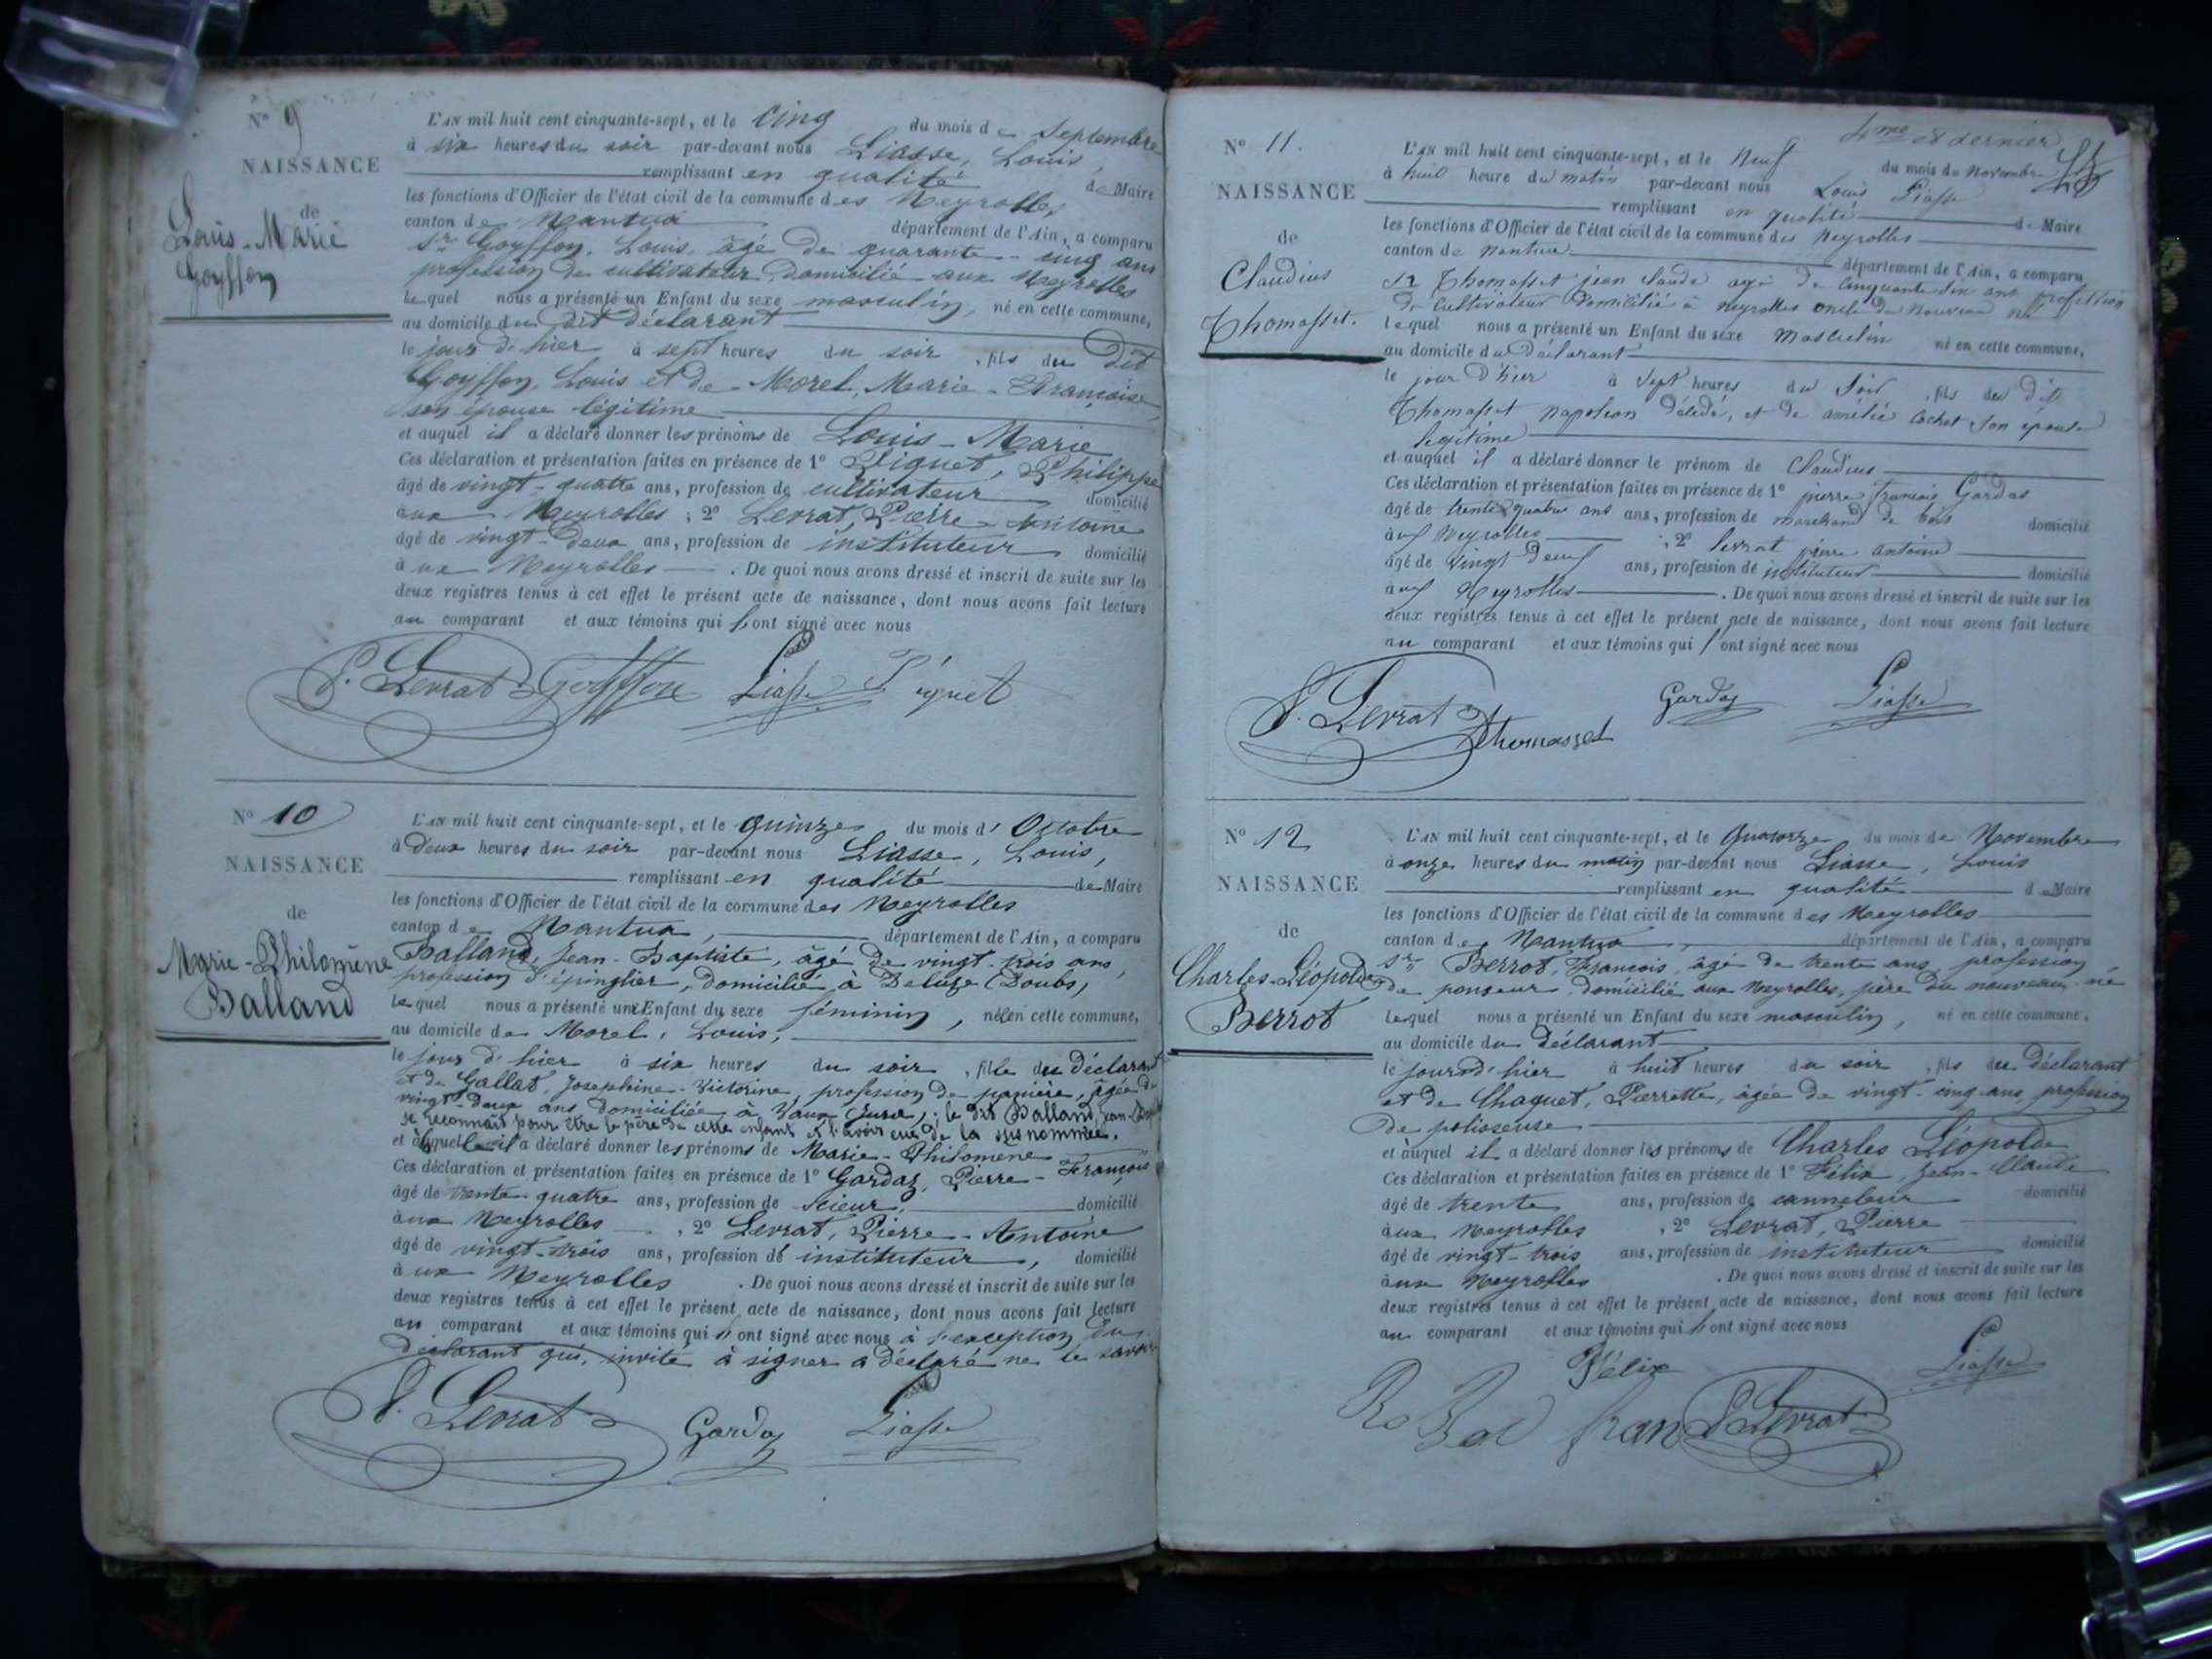 N° 9
NAISSANCE
de
Louis-Marie
Goyffon
L'AN mil huit cent cinquante-sept, et le cinq du mois de Septembre
à six heures du soir par-devant nous Liasse, Louis,
remplissant en qualité de Maire
les fonctions d'Officier de l'état civil de la commune des Neyrolles
canton de Nantua département de l'Ain, a comparu
Sr Goyffon, Louis, âgé de quarante-cinq ans
profession de cultivateur, domicilié aux Neyrolles
lequel nous a présenté un Enfant du sexe masculin, né en cette commune,
au domicile du dit déclarant
le jour d'hier à sept heures du soir, fils du Dit
Goyffon, Louis et de Morel, Marie-Françoise,
son épouse légitime
et auquel il a déclaré donner les prénoms de Louis-Marie
Ces déclaration et présentation faites en présence de 1° Piquet, Philippe
âgé de vingt-quatre ans, profession de cultivateur domicilié
aux Neyrolles; 2° Levrat, Pierre-Antoine
âgé de vingt-deux ans, profession de instituteur domicilié
aux Neyrolles. De quoi nous avons dressé et inscrit de suite sur les
deux registres tenus à cet effet le présent acte de naissance, dont nous avons fait lecture
au comparant et aux témoins qui l'ont signé avec nous
P. Levrat Goyffon Liasse Piquet
N° 10
NAISSANCE
de
Marie-Philomène
Balland
L'AN mil huit cent cinquante-sept, et le quinze du mois d'Octobre
à deux heures du soir par-devant nous Liasse, Louis,
remplissant en qualité de Maire
les fonctions d'Officier de l'état civil de la commune des Neyrolles
canton de Nantua, département de l'Ain, a comparu
Balland, Jean-Baptiste, âgé de vingt-trois ans,
profession d'épinglier, domicilié à Deluze (Doubs)
lequel nous a présenté un Enfant du sexe féminin, née en cette commune,
au domicile de Morel, Louis,
le jour d'hier à six heures du soir, fille du déclarant
et de Gallat, Josephine-Victorine, profession de , âgée de
vingt-deux ans domiciliée à Vaux (Jura); le dit Balland, Jean-Bapte
se reconnaît pour être le père de cette enfant et l'avoir eue de la susnommée.
et à laquelle il a déclaré donner les prénoms de Marie-Philomène
Ces déclaration et présentation faites en présence de 1° Gardaz, Pierre-François
âgé de trente-quatre ans, profession de Scieur, domicilié
aux Neyrolles, 2° Levrat, Pierre-Antoine
âgé de vingt-trois ans, profession de instituteur, domicilié
aux Neyrolles. De quoi nous avons dressé et inscrit de suite sur les
deux registres tenus à cet effet le présent acte de naissance, dont nous avons fait lecture
au comparant et aux témoins qui l'ont signé avec nous à l'exception du
déclarant qui, invité à signer a déclaré ne le savoir
P. Levrat Gardaz Liasse
4me et dernier
N° 11.
NAISSANCE
de
Claudius
Thomasset.
L'AN mil huit cent cinquante-sept, et le Neuf du mois de Novembre
à huit heure du matin par-devant nous Louis Liasse
remplissant en qualité de Maire
les fonctions d'Officier de l'état civil de la commune des Neyrolles
canton de Nantua département de l'Ain, a comparu
Sr Thomasset jean claude agé de Cinquante six ans profession
de Cultivateur Domicilié à Neyrolles oncle du nouveau né
lequel nous a présenté un Enfant du sexe Masculin né en cette commune,
au domicile du Déclarant
le jour D'hier à Sept heures du Soir, fils du dit
Thomasset Napoleon Décédé, et de amélie Cochet son épouse
legitime
et auquel il a déclaré donner le prénom de Claudius
Ces déclaration et présentation faites en présence de 1° pierre françois Gardas
âgé de trente quatre ans ans, profession de marchand de bois domicilié
aux Neyrolles; 2° Levrat pierre antoine
âgé de Vingt deux ans, profession de instituteur domicilié
aux Neyrolles. De quoi nous avons dressé et inscrit de suite sur les
deux registres tenus à cet effet le présent acte de naissance, dont nous avons fait lecture
au comparant et aux témoins qui l'ont signé avec nous
P. Levrat Thomasset Gardaz Liasse
N° 12
NAISSANCE
de
Charles-Léopold
Berrot
L'AN mil huit cent cinquante-sept, et le Quatorze du mois de Novembre
à onze heures du matin par-devant nous Liasse, Louis
remplissant en qualité de Maire
les fonctions d'Officier de l'état civil de la commune des Neyrolles
canton de Nantua, département de l'Ain, a comparu
Sr Berrot, François, âgé de trente ans, profession
de ponseur, domicilié aux Neyrolles, père du nouveau-né
lequel nous a présenté un Enfant du sexe masculin, né en cette commune,
au domicile du déclarant
le jour d'hier à huit heures du soir, fils du déclarant
et de Chaquet, Pierrette, âgée de vingt-cinq ans, profession
de polisseuse
et auquel il a déclaré donner les prénoms de Charles Léopold
Ces déclaration et présentation faites en présence de 1° Félix, Jean-Claude
âgé de trente ans, profession de canneleur domicilié
aux Neyrolles, 2° Levrat, Pierre
âgé de vingt-trois ans, profession de instituteur domicilié
aux Neyrolles. De quoi nous avons dressé et inscrit de suite sur les
deux registres tenus à cet effet le présent acte de naissance, dont nous avons fait lecture
au comparant et aux témoins qui l'ont signé avec nous
Félix Liasse
fran P. Levrat